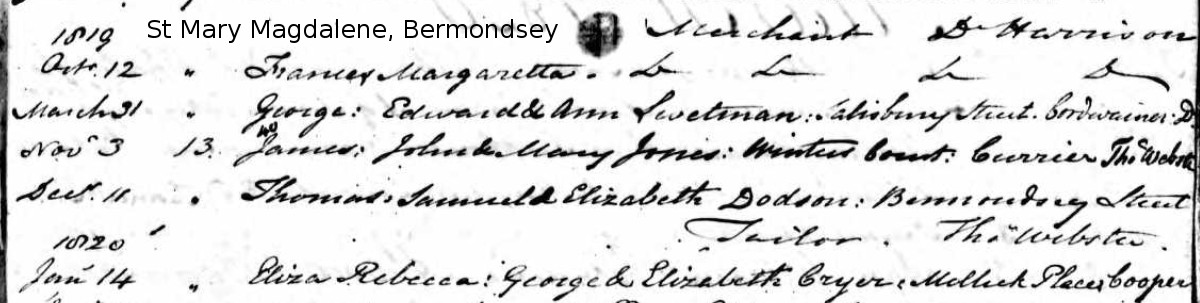 St Mary Magdalene, Bermondsey
1819 Merchant Dr Harrison
Octr. 12 " Frances Margaretta. Do Do Do Do
March 31 " George: Edward & Ann Swetman: Salisbury Street. Cordwainer: D
Novr 3 13. James: John & Mary Jones: Winters Court: Currier Thos Webster
Decr. 11 " Thomas: Samuel & Elizabeth Dodson: Bermondsey Street
Tailor. Thos Webster.
1820
Jany 14 " Eliza Rebecca: George & Elizabeth Cryer: Mellick Place: Cooper